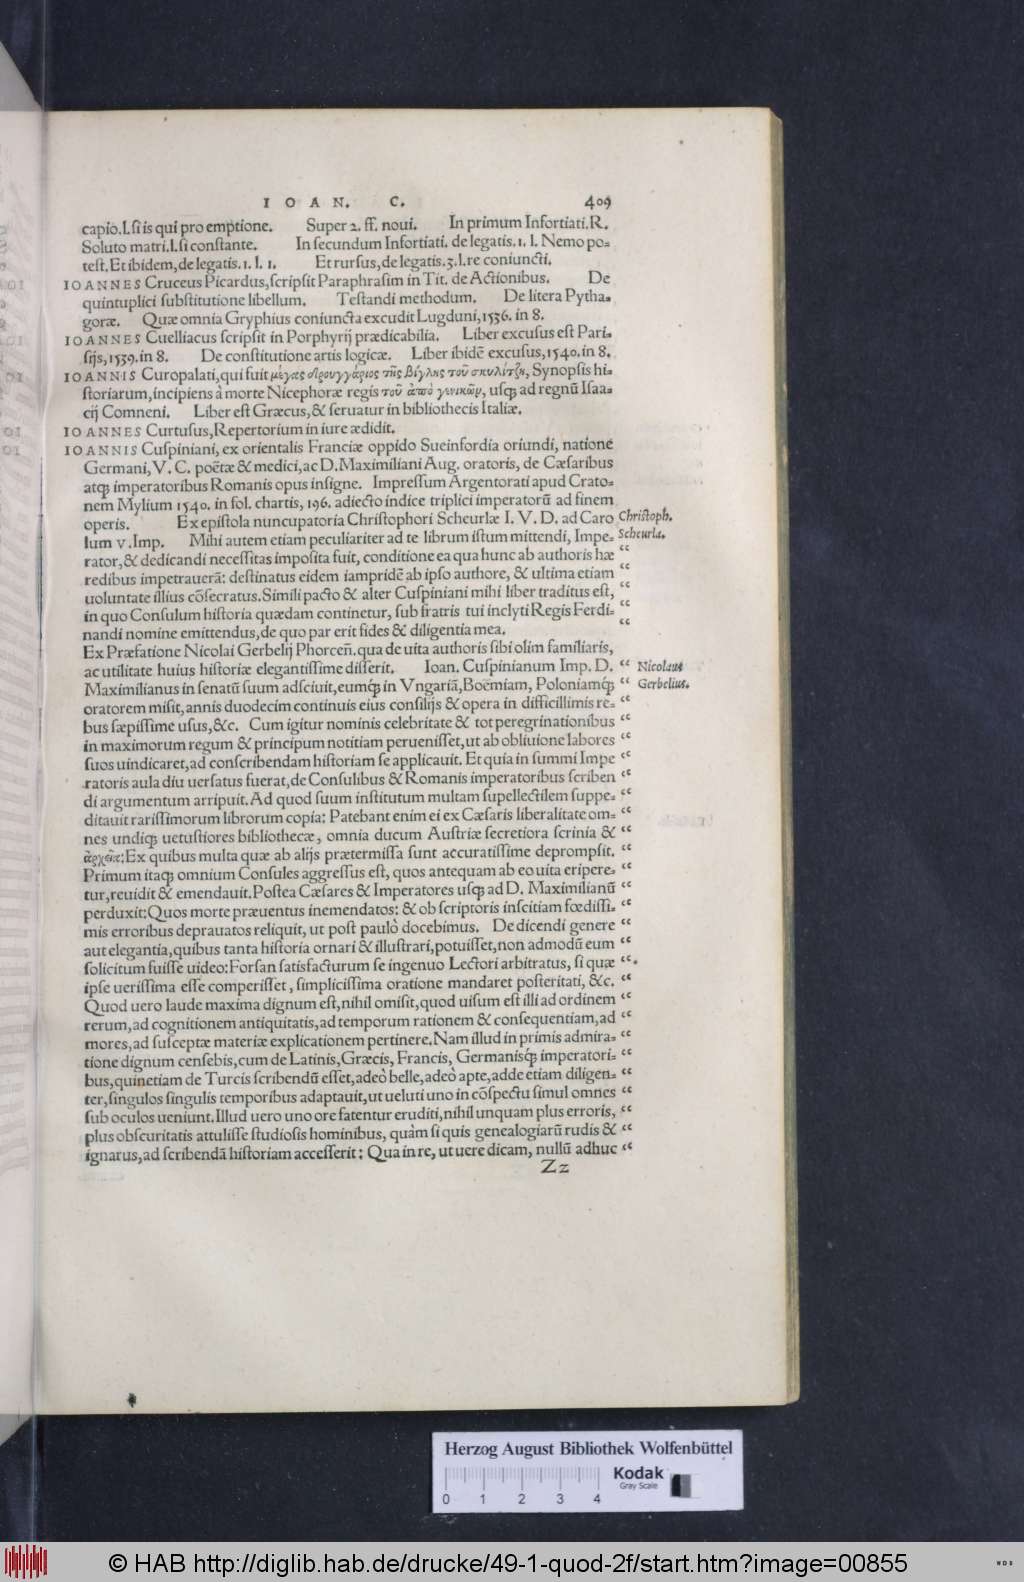 IOAN. C. 409
capio.l.ſi is qui pro emptione. Super 2. ff. noui. In primum Infortiati.R.
Soluto matri.l.ſi conſtante. In ſecundum Infortiati. de legatis.1. l. Nemo po=
teſt.Et ibidem,de legatis.1. l. 1. Et rurſus,de legatis.3.l.re coniuncti.
IOANNES Cruceus Picardus,ſcripſit Paraphraſim in Tit. de Actionibus. De
quintuplici ſubſtitutione libellum. Teſtandi methodum. De litera Pytha=
goræ. Quæ omnia Gryphius coniuncta excudit Lugduni,1536. in 8.
IOANNES Cuelliacus ſcripſit in Porphyrij prædicabilia. Liber excuſus eſt Pari=
ſijs,1539.in 8. De conſtitutione artis logicæ. Liber ibidē excuſus,1540.in 8.
IOANNIS Curopalati,qui fuit μέγας δρουγγάριος τῆς βίγλης τοῦ σκυλίτζη, Synopſis hi=
ſtoriarum,incipiens à morte Nicephoræ regis τοῦ ἀπὸ γενικῶν, uſq; ad regnū Iſaa=
cij Comneni. Liber eſt Græcus,& ſeruatur in bibliothecis Italiæ.
IOANNES Curtuſus,Repertorium in iure ædidit.
IOANNIS Cuſpiniani, ex orientalis Franciæ oppido Sueinfordia oriundi, natione
Germani,V. C. poëtæ & medici,ac D.Maximiliani Aug. oratoris, de Cæſaribus
atq; imperatoribus Romanis opus inſigne. Impreſſum Argentorati apud Crato=
nem Mylium 1540. in fol. chartis, 196. adiecto indice triplici imperatorū ad finem
operis. Ex epiſtola nuncupatoria Chriſtophori Scheurlæ I. V. D. ad Caro
Chriſtoph.
lum V. Imp. Mihi autem etiam peculiariter ad te librum iſtum mittendi, Impe=
Scheurla.
rator,& dedicandi neceſſitas impoſita fuit, conditione ea qua hunc ab authoris hæ “
redibus impetraueră: deſtinatus eidem iampridē ab ipſo authore, & ultima etiam “
uoluntate illius cōſecratus.Simili pacto & alter Cuſpiniani mihi liber traditus eſt, “
in quo Conſulum hiſtoria quædam continetur, ſub fratris tui inclyti Regis Ferdi= “
nandi nomine emittendus,de quo par erit fides & diligentia mea. “
Ex Præfatione Nicolai Gerbelij Phorceñ.qua de uita authoris ſibi olim familiaris,
ac utilitate huius hiſtoriæ elegantiſſime diſſerit. Ioan. Cuſpinianum Imp. D. “ Nicolaus
Maximilianus in ſenatū ſuum adſciuit,eumq́; in Vngariā,Boëmiam, Poloniamq́; “ Gerbelius.
oratorem miſit,annis duodecim continuis eius conſilijs & opera in difficillimis re= “
bus ſæpiſſime uſus,&c. Cum igitur nominis celebritate & tot peregrinationibus “
in maximorum regum & principum notitiam perueniſſet,ut ab obliuione labores “
ſuos uindicaret,ad conſcribendam hiſtoriam ſe applicauit. Et quia in ſummi Impe “
ratoris aula diu uerſatus fuerat,de Conſulibus & Romanis imperatoribus ſcriben “
di argumentum arripuit.Ad quod ſuum inſtitutum multam ſupellectilem ſuppe= “
ditauit rariſſimorum librorum copia: Patebant enim ei ex Cæſaris liberalitate om= “
nes undiq; uetuſtiores bibliothecæ, omnia ducum Auſtriæ ſecretiora ſcrinia & “
ἀρχεῖα:Ex quibus multa quæ ab alijs prætermiſſa ſunt accuratiſſime deprompſit. “
Primum itaq; omnium Conſules aggreſſus eſt, quos antequam ab eo uita eripere= “
tur,reuidit & emendauit.Poſtea Cæſares & Imperatores uſq; ad D. Maximilianū “
perduxit:Quos morte præuentus inemendatos: & ob ſcriptoris inſcitiam fœdiſſi= “
mis erroribus deprauatos reliquit, ut poſt paulò docebimus. De dicendi genere “
aut elegantia,quibus tanta hiſtoria ornari & illuſtrari,potuiſſet,non admodū eum “
ſolicitum fuiſſe uideo:Forſan ſatisfacturum ſe ingenuo Lectori arbitratus, ſi quæ “
ipſe ueriſſima eſſe comperiſſet, ſimpliciſſima oratione mandaret poſteritati, &c. “
Quod uero laude maxima dignum eſt,nihil omiſit,quod uiſum eſt illi ad ordinem “
rerum,ad cognitionem antiquitatis,ad temporum rationem & conſequentiam,ad “
mores,ad ſuſceptæ materiæ explicationem pertinere.Nam illud in primis admira= “
tione dignum cenſebis,cum de Latinis,Græcis, Francis, Germanisq́; imperatori= “
bus,quinetiam de Turcis ſcribendū eſſet,adeò belle,adeò apte,adde etiam diligen= “
ter,ſingulos ſingulis temporibus adaptauit,ut ueluti uno in cōſpectu ſimul omnes “
ſub oculos ueniunt.Illud uero uno ore fatentur eruditi,nihil unquam plus erroris, “
plus obſcuritatis attuliſſe ſtudioſis hominibus, quàm ſi quis genealogiarū rudis & “
ignarus,ad ſcribendā hiſtoriam acceſſerit: Qua in re, ut uere dicam, nullū adhuc “
Zz
Herzog August Bibliothek Wolfenbüttel
Kodak
Gray Scale
0 1 2 3 4
© HAB http://diglib.hab.de/drucke/49-1-quod-2f/start.htm?image=00855